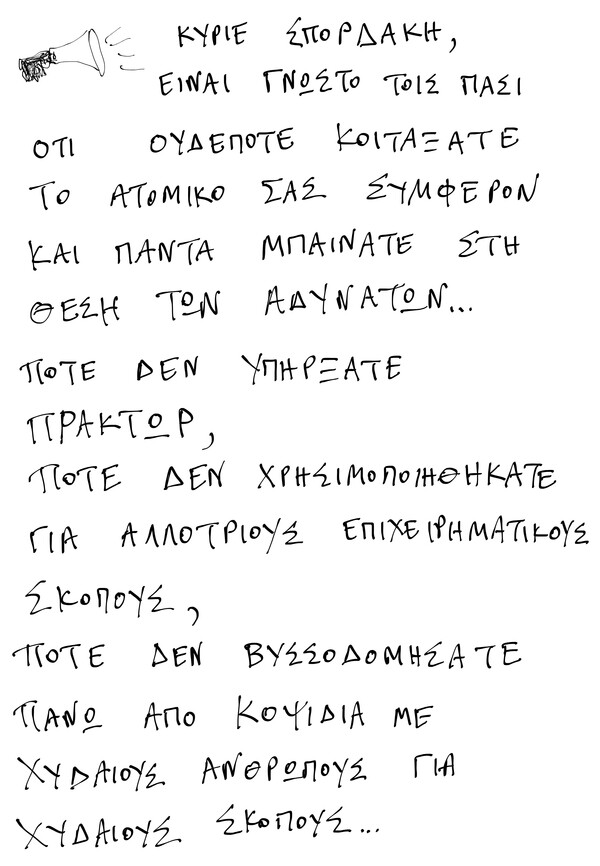 ΚΥΡΙΕ ΣΠΟΡΔΑΚΗ,
ΕΙΝΑΙ ΓΝΩΣΤΟ ΤΟΙΣ ΠΑΣΙ
ΟΤΙ ΟΥΔΕΠΟΤΕ ΚΟΙΤΑΞΑΤΕ
ΤΟ ΑΤΟΜΙΚΟ ΣΑΣ ΣΥΜΦΕΡΟΝ
ΚΑΙ ΠΑΝΤΑ ΜΠΑΙΝΑΤΕ ΣΤΗ
ΘΕΣΗ ΤΩΝ ΑΔΥΝΑΤΩΝ...
ΠΟΤΕ ΔΕΝ ΥΠΗΡΞΑΤΕ
ΠΡΑΚΤΩΡ,
ΠΟΤΕ ΔΕΝ ΧΡΗΣΙΜΟΠΟΙΗΘΗΚΑΤΕ
ΓΙΑ ΑΛΛΟΤΡΙΟΥΣ ΕΠΙΧΕΙΡΗΜΑΤΙΚΟΥΣ
ΣΚΟΠΟΥΣ,
ΠΟΤΕ ΔΕΝ ΒΥΣΣΟΔΟΜΗΣΑΤΕ
ΠΑΝΩ ΑΠΟ ΚΟΨΙΔΙΑ ΜΕ
ΧΥΔΑΙΟΥΣ ΑΝΘΡΩΠΟΥΣ ΓΙΑ
ΧΥΔΑΙΟΥΣ ΣΚΟΠΟΥΣ...